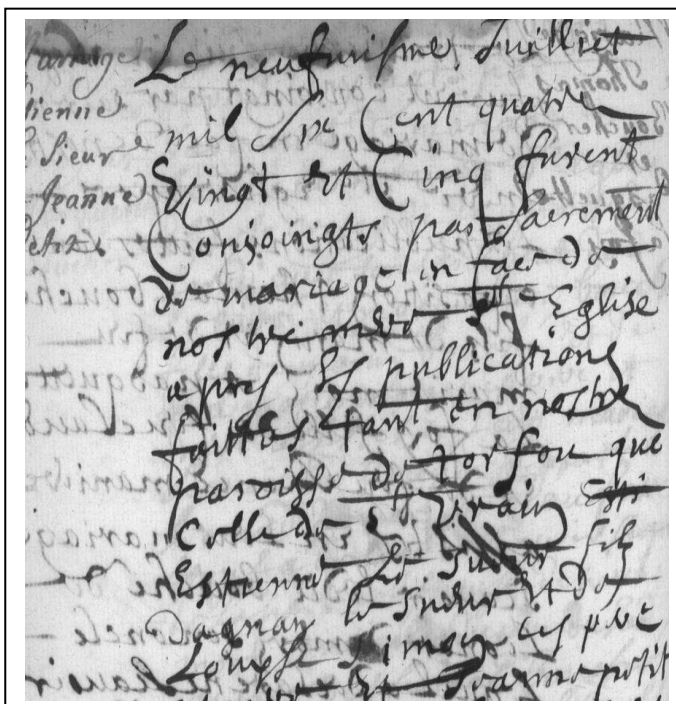 ariage
tienne
Sieur
Jeanne
etit
Le neufviesme Juilliet
mil six Cent quatre
Vingt et Cinq furent
Conjoingts par Sacrement
de mariage in face de
nostre mere Eglise
apres les publications
faittes tant en nostre
paroisse de torfou que
Celle de St Vrain
Estienne le sueur fils
dagnan le sueur et de
Louyse Simon
Et Jeanne petit